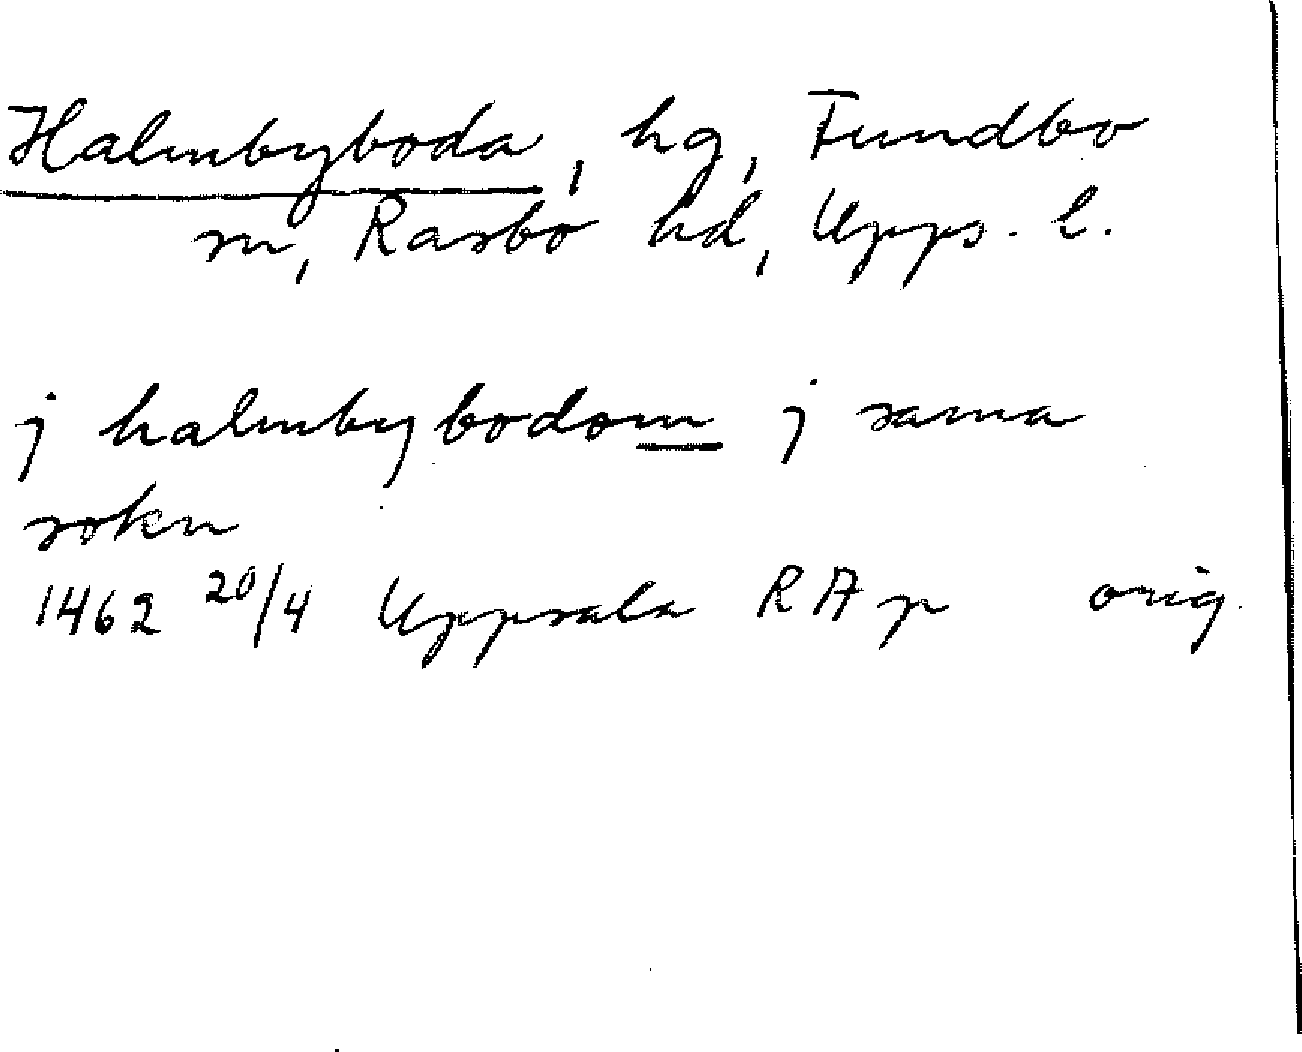 Halmbyboda, hg, Fundbo
sn, Rasbo hd, Upps. l.
j halmbybodom j sama
sokn
1462 20/4 Uppsala RAp orig.